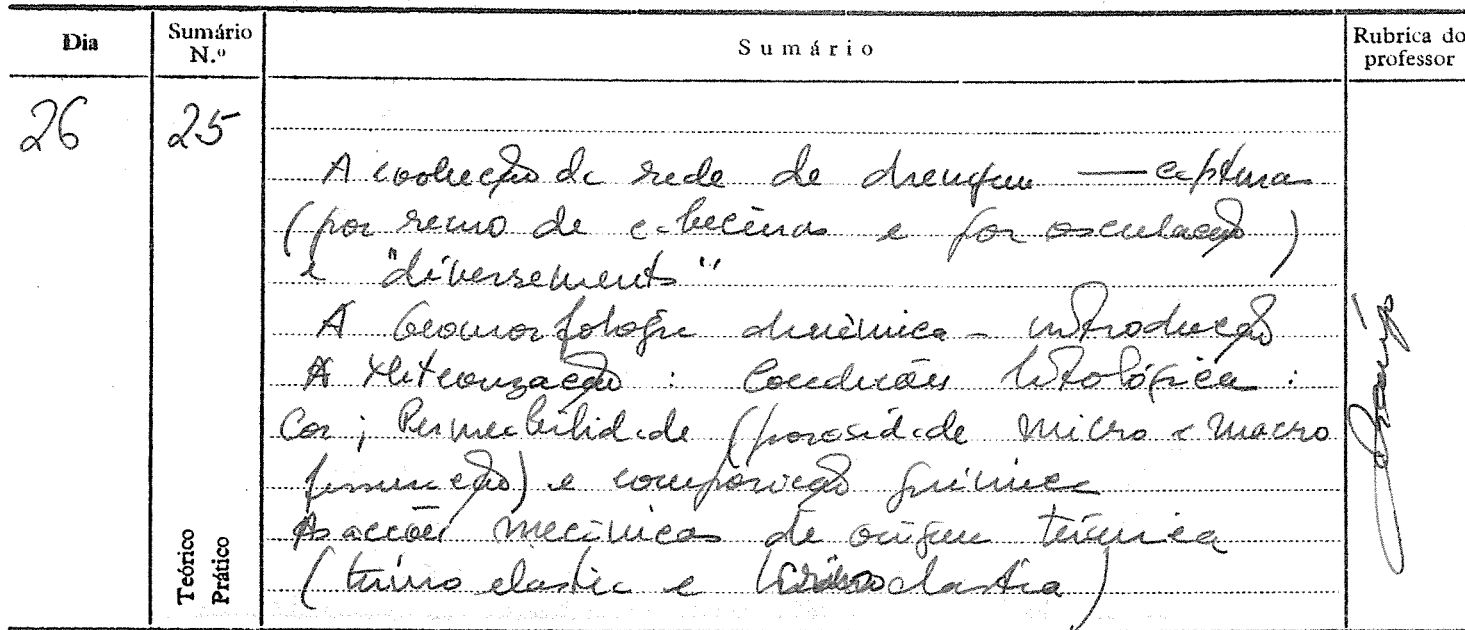 Dia
Sumário N.º
Sumário
Rubrica do professor
26
25
A evolução da rede de drenagem — capturas
(por recuo de cabeceiras e por osculação)
e "déversements"
A Geomorfologia dinâmica - introdução
A meteorização : Condições litológicas :
Cor ; Permeabilidade (porosidade micro e macro
fissuração) e composição química
As acções mecânicas de origem térmica
(termoclastia e crioclastia)
Teórico
Prático